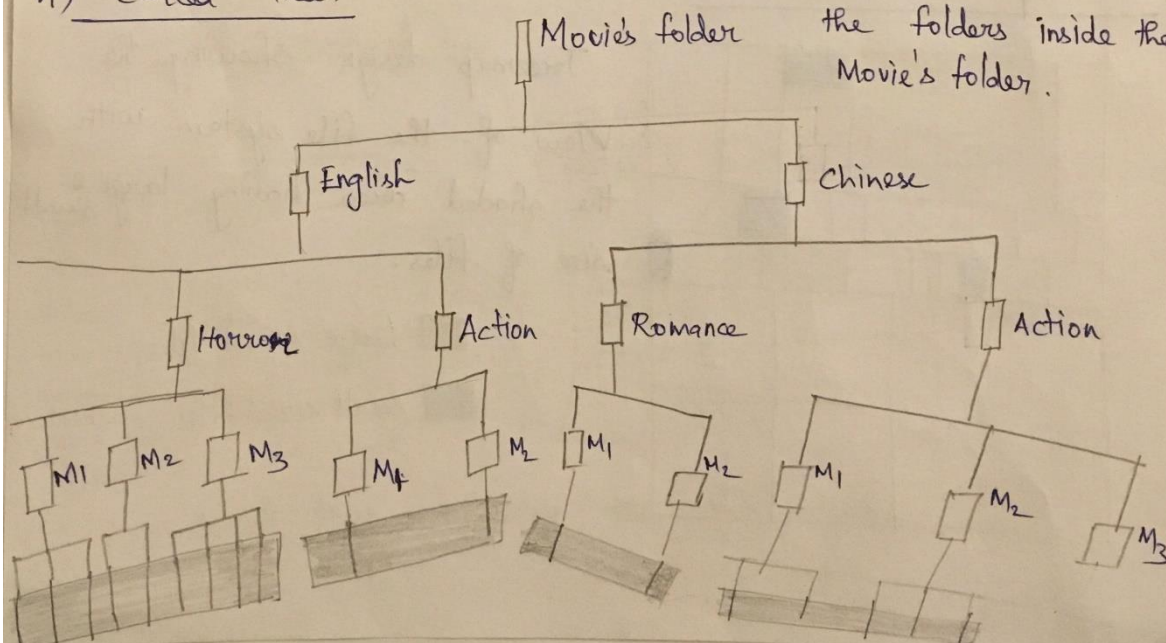 Movie's folder
the folders inside the
Movie's folder.
English
Chinese
Horror
Action
Romance
Action
M1
M2
M3
M4
M2
M1
M2
M1
M2
M3